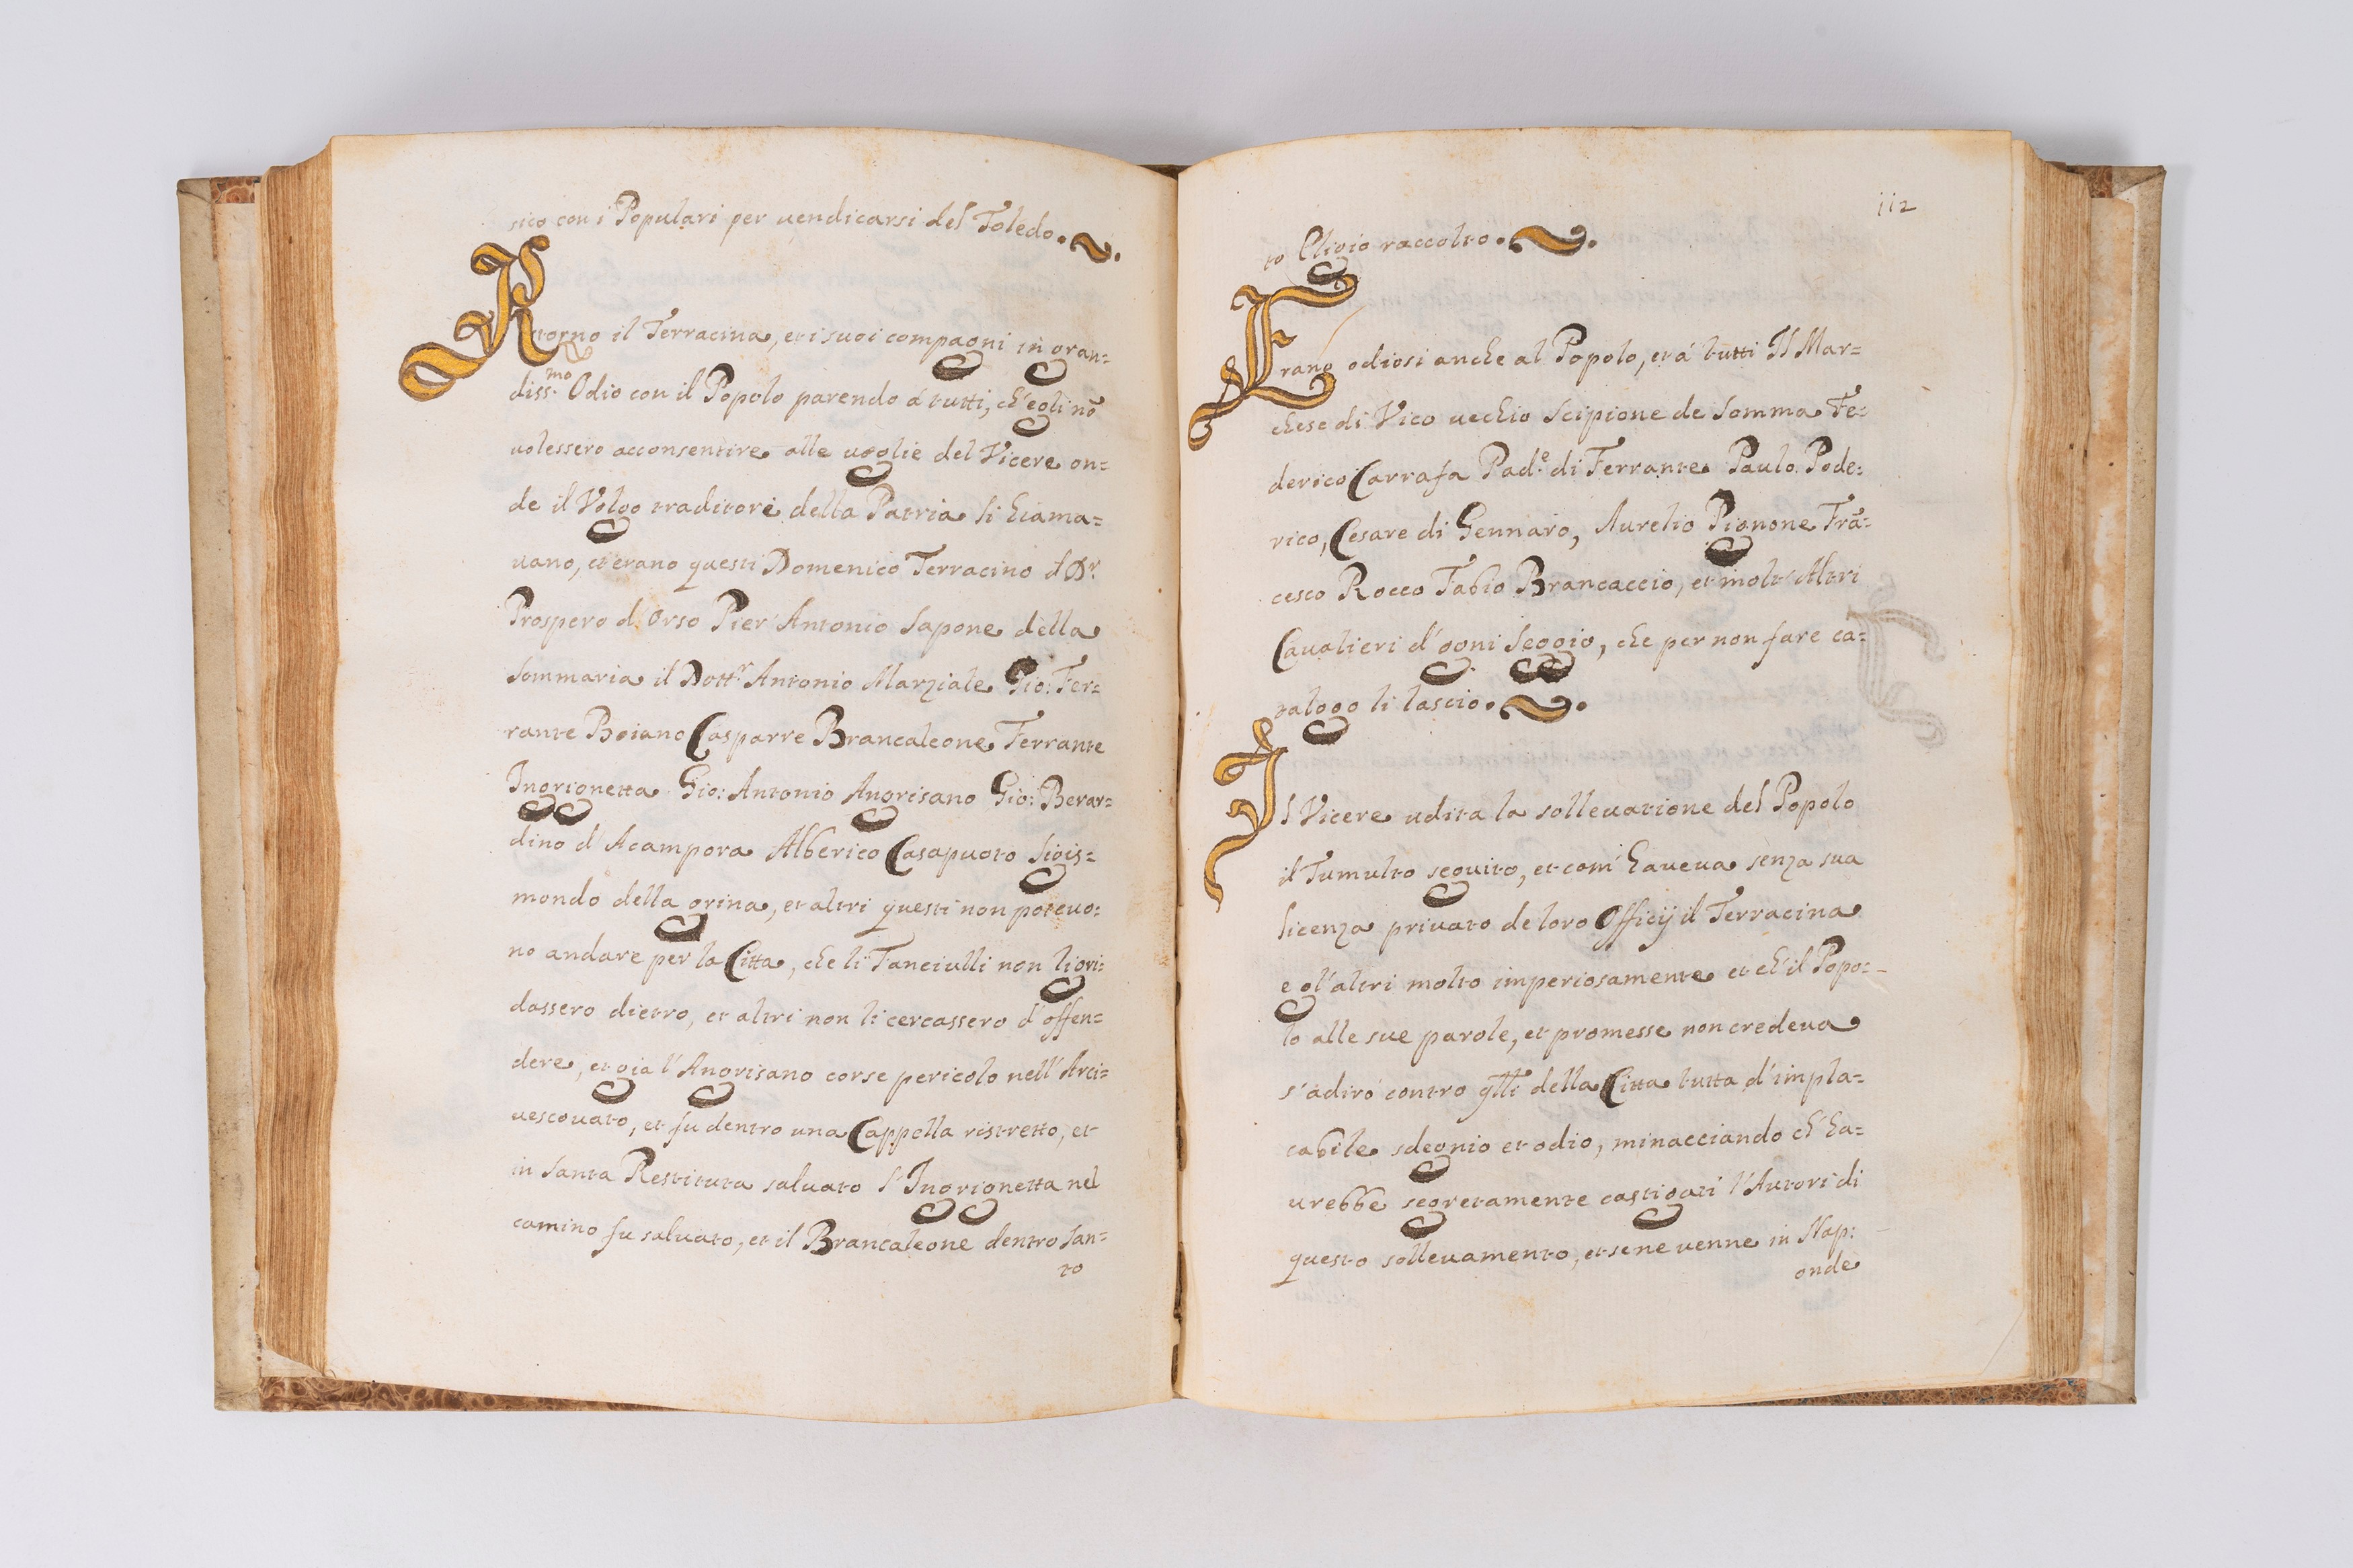 sico con i Populari per vendicarsi del Toledo.
Ritorno il Terracina, et i suoi compagni in gran=
diss.mo Odio con il Popolo parendo á tutti, ch'egli nõ
volessero acconsentire alle voglie del Vicere on=
de il Volgo traditori della Patria li hiama=
uano, et erano questi Domenico Terracino il Dr.
Prospero d'Orso Pier' Antonio Sapone della
Sommaria il Dottr. Antonio Marziale Gio: Fer=
rante Boiano Casparre Brancaleone Ferrante
Ingrignetta Gio: Antonio Angrisano Gio: Berar=
dino d'Acampora Alberico Casapuoto Sigis=
mondo della grina, et altri questi non poteuo:
no andare per la Citta, che li Fanciulli non ligri=
dassero dietro, et altri non li cercassero d'offen=
dere, et gia l'Angrisano corse pericolo nell'Arci=
vescouato, et fu dentro una Cappella ristretto, et
in Santa Restituta saluato l'Ingrignetta nel
camino fu saluato, et il Brancaleone dentro San=
to
112
to Eligio raccolto.
Erano odiosi anche al Popolo, et á tutti Il Mar=
chese di Vico vecchio Scipione de Somma Fe=
derico Carrafa Pad.e di Ferrante Paulo Pode:
rico, Cesare di Gennaro, Aurelio Pignone Frã=
cesco Rocco Fabio Brancaccio, et molt'Altri
Cavalieri d'ogni Seggio, che per non fare ca=
talogo li lascio.
Il Vicere udita la sollevatione del Popolo
il Tumulto seguito, et com' haueua senza sua
licenza priuato de loro Officij il Terracina
e gl'altri molto imperiosamente et ch'il Popo=
lo alle sue parole, et promesse non credeua
s'adiró contro qlli della Citta tutta d'impla=
cabile sdegnio et odio, minacciando ch'ha=
urebbe segretamente castigati l'Autori di
questo sollevamento, et se ne venne in Nap:
onde